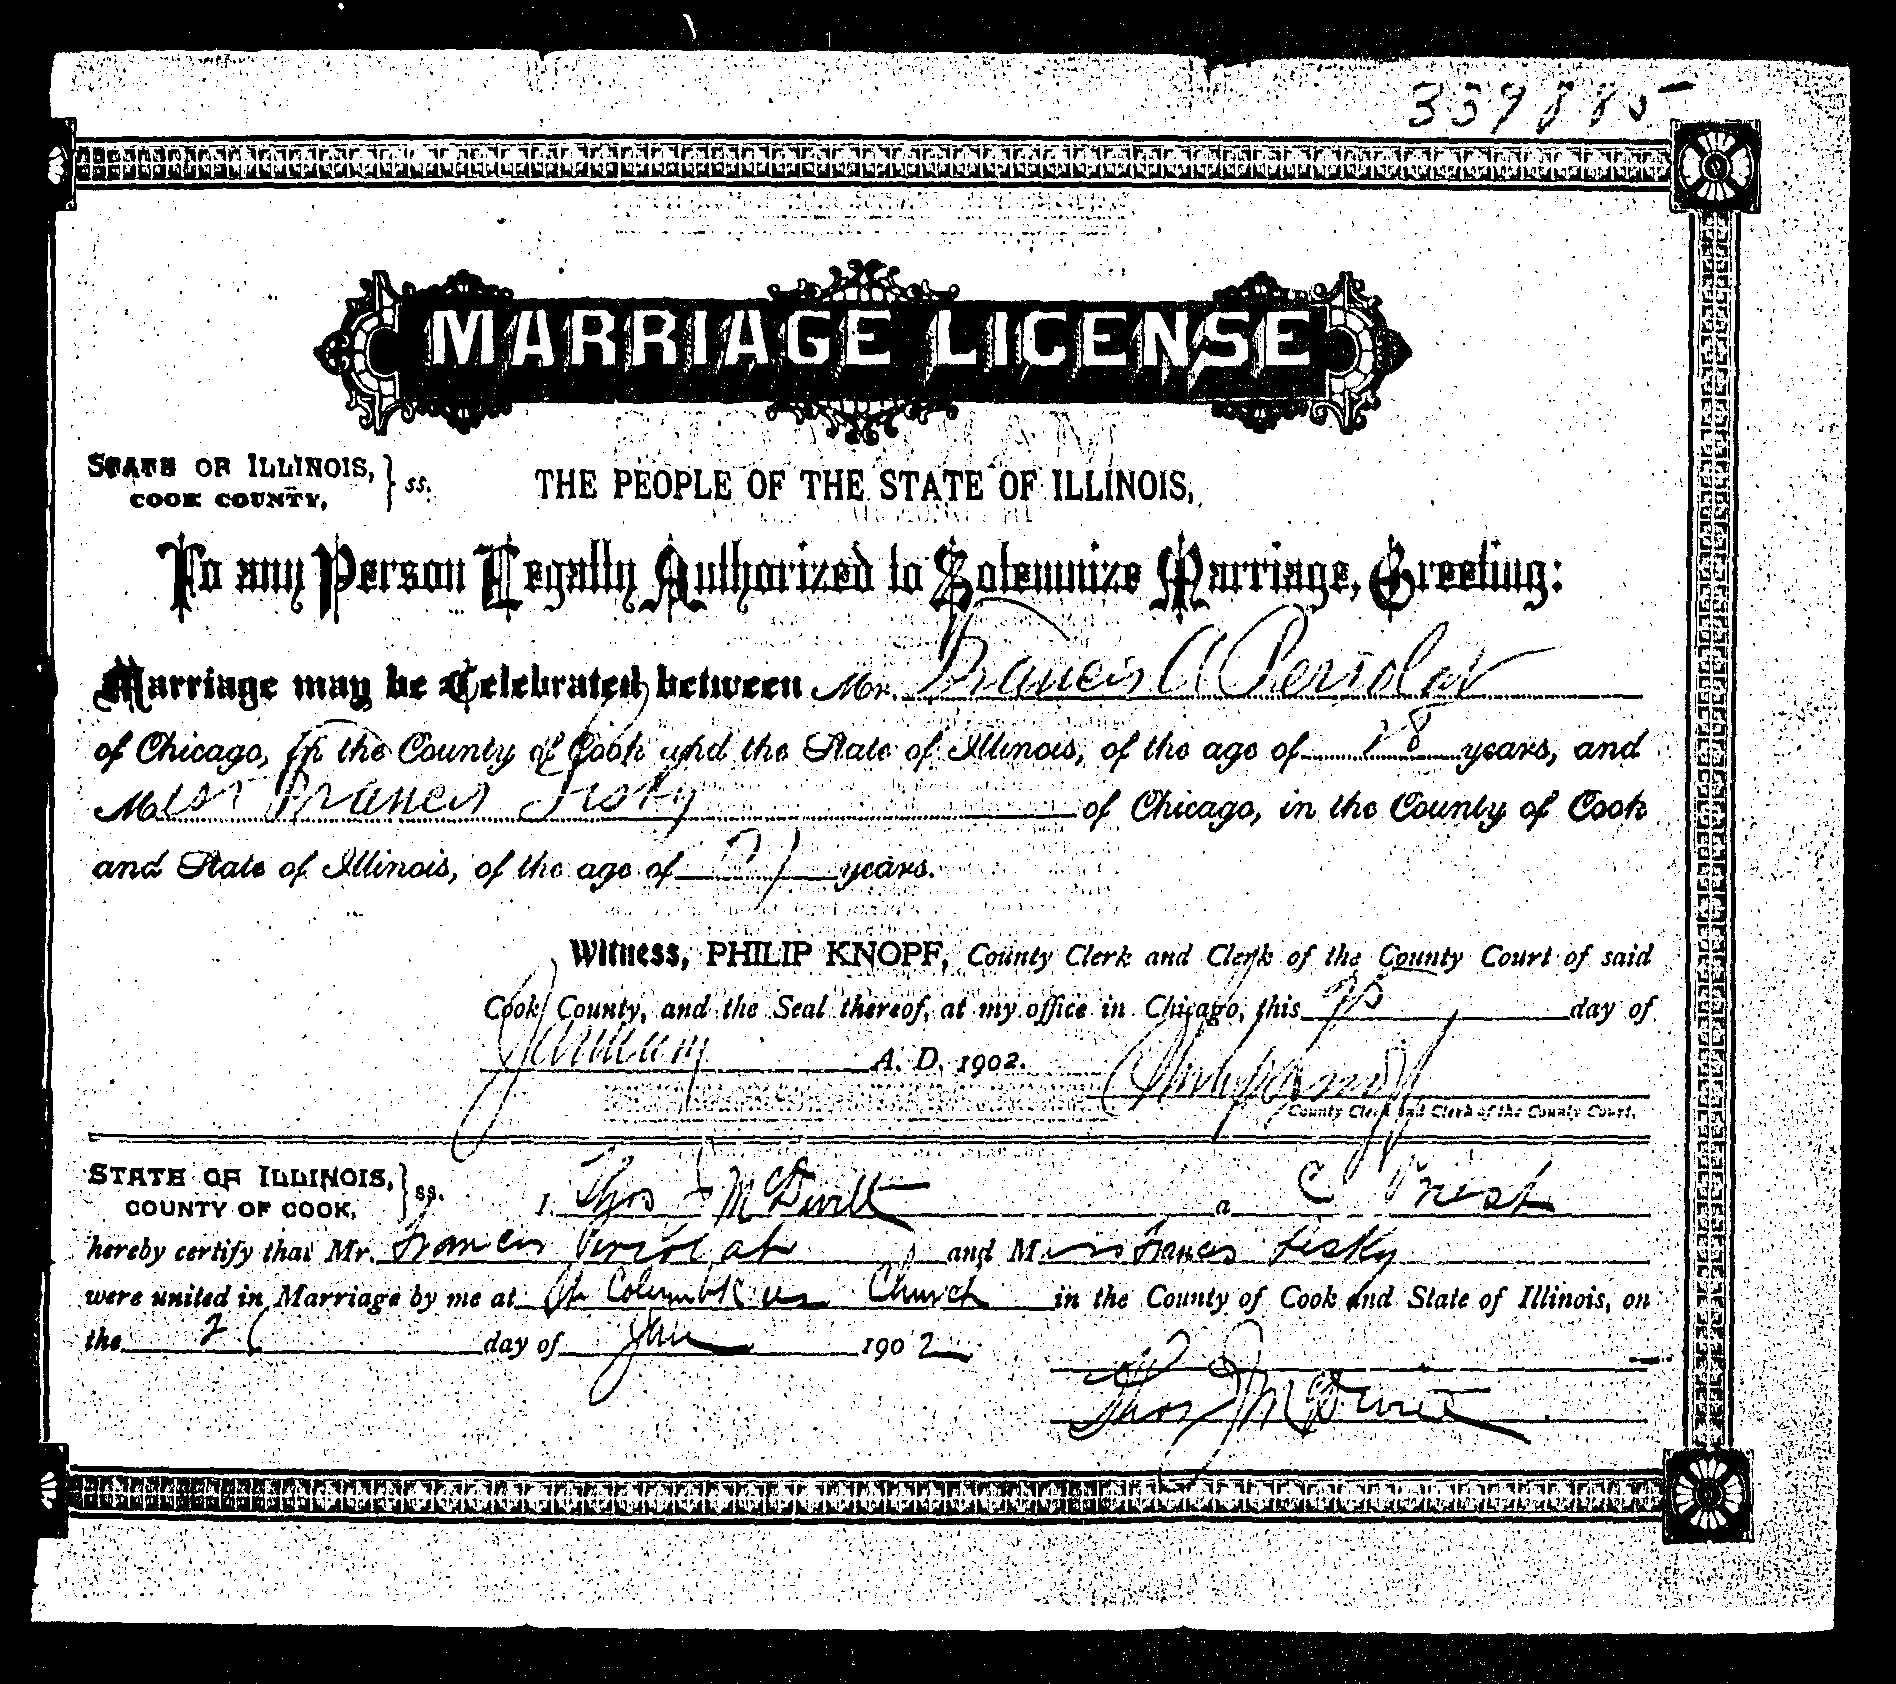 339885
MARRIAGE LICENSE
STATE OF ILLINOIS, } ss.
COOK COUNTY,
THE PEOPLE OF THE STATE OF ILLINOIS,
To any Person Legally Authorized to Solemnize Marriage, Greeting:
Marriage may be Celebrated between Mr. Francis A Periolat
of Chicago, in the County of Cook and the State of Illinois, of the age of 28 years, and
Miss Frances Lisky of Chicago, in the County of Cook
and State of Illinois, of the age of 21 years.
Witness, PHILIP KNOPF, County Clerk and Clerk of the County Court of said
Cook County, and the Seal thereof, at my office in Chicago, this 25 day of
January A. D. 1902. Philip Knopf
County Clerk and Clerk of the County Court.
STATE OF ILLINOIS, } ss.
COUNTY OF COOK,
I, Thos J McDevitt a C Priest
hereby certify that Mr. Francis Periolat and Miss Frances Lisky
were united in Marriage by me at St Columbkilles Church in the County of Cook and State of Illinois, on
the day of Jan 1902
Thos J McDevitt